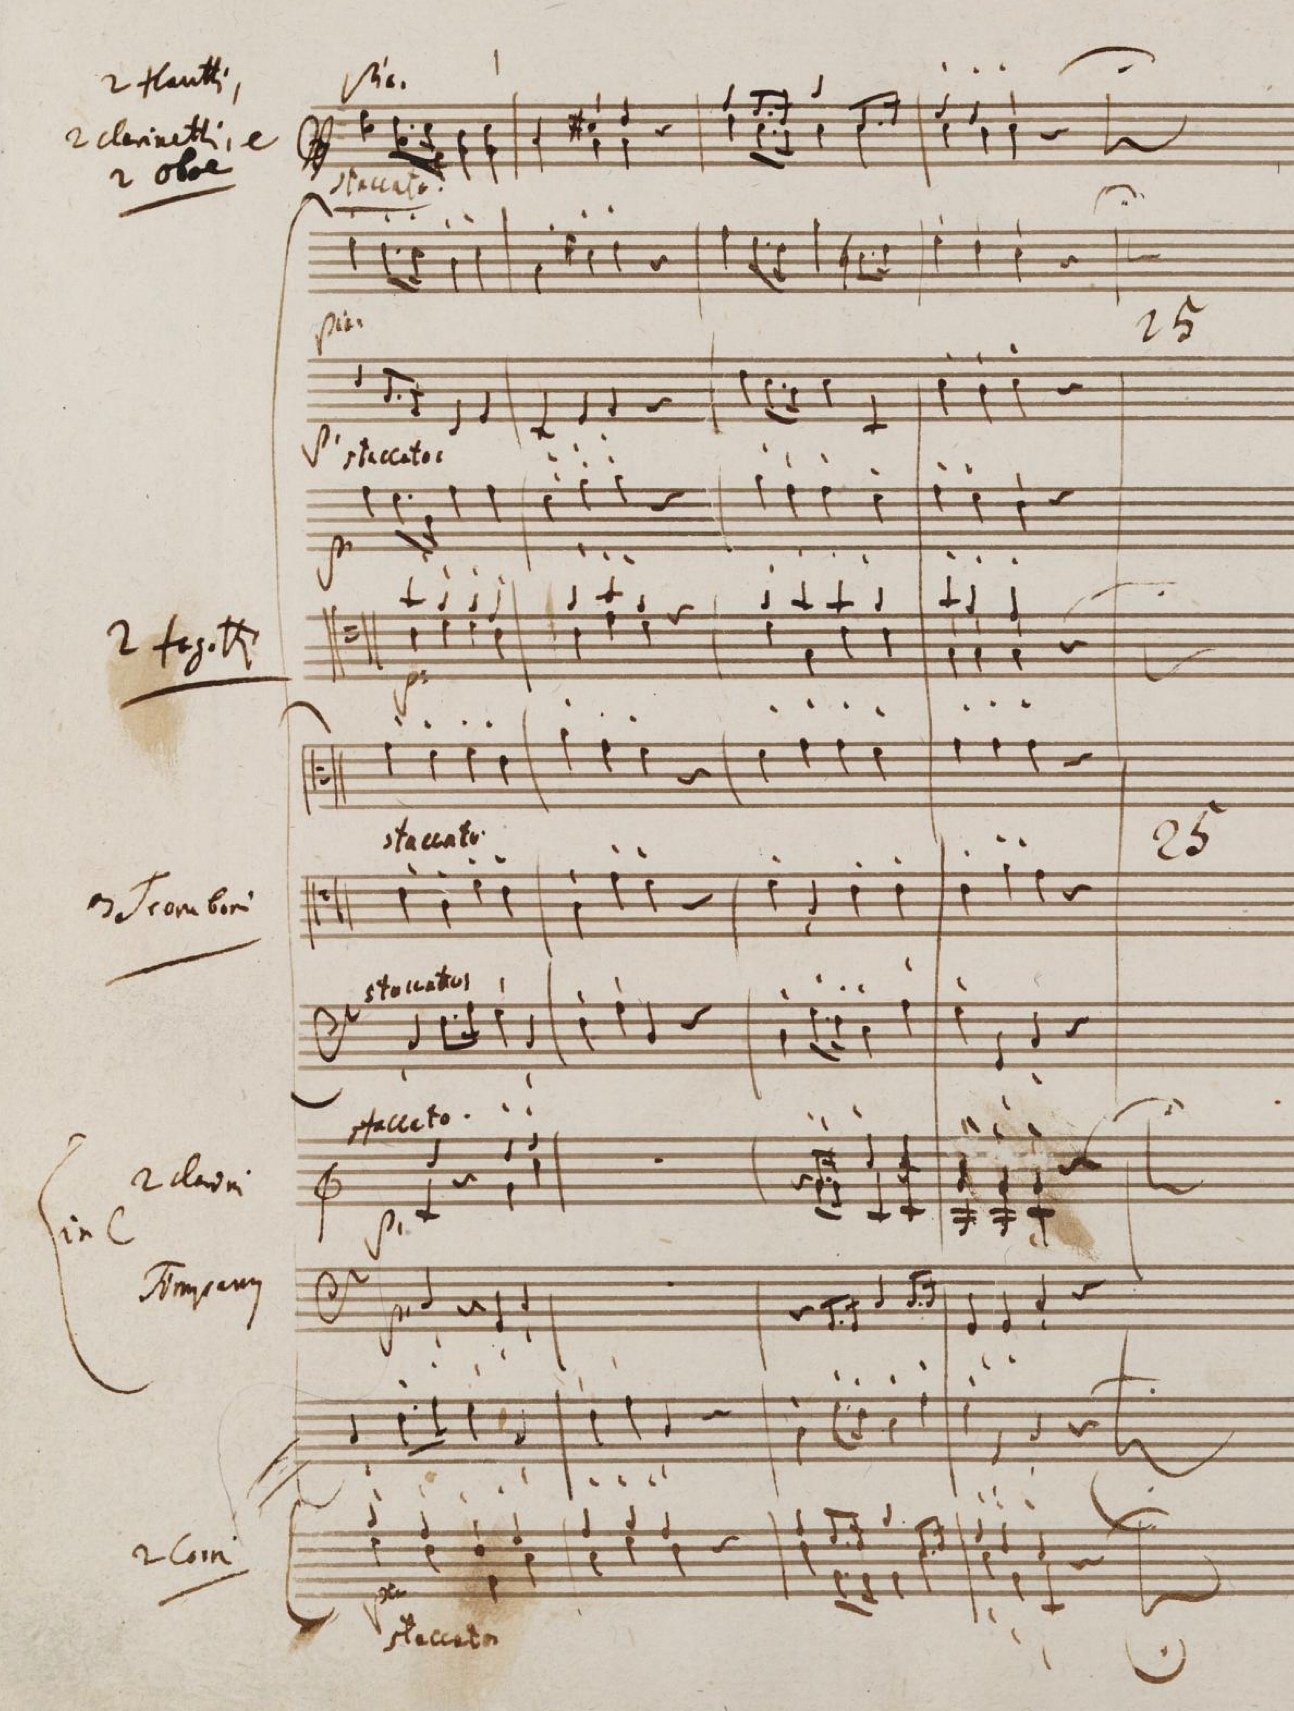 2 flautti,
pia.
2 clarinetti, e
2 oboe
staccato.
pia.
25
p: staccatos
p:
2 fagotti
p:
staccato.
25
3 Tromboni
staccattos
staccato.
2 clarini
in C
p:
Tympany
p:
2 Corni
pia
staccatos